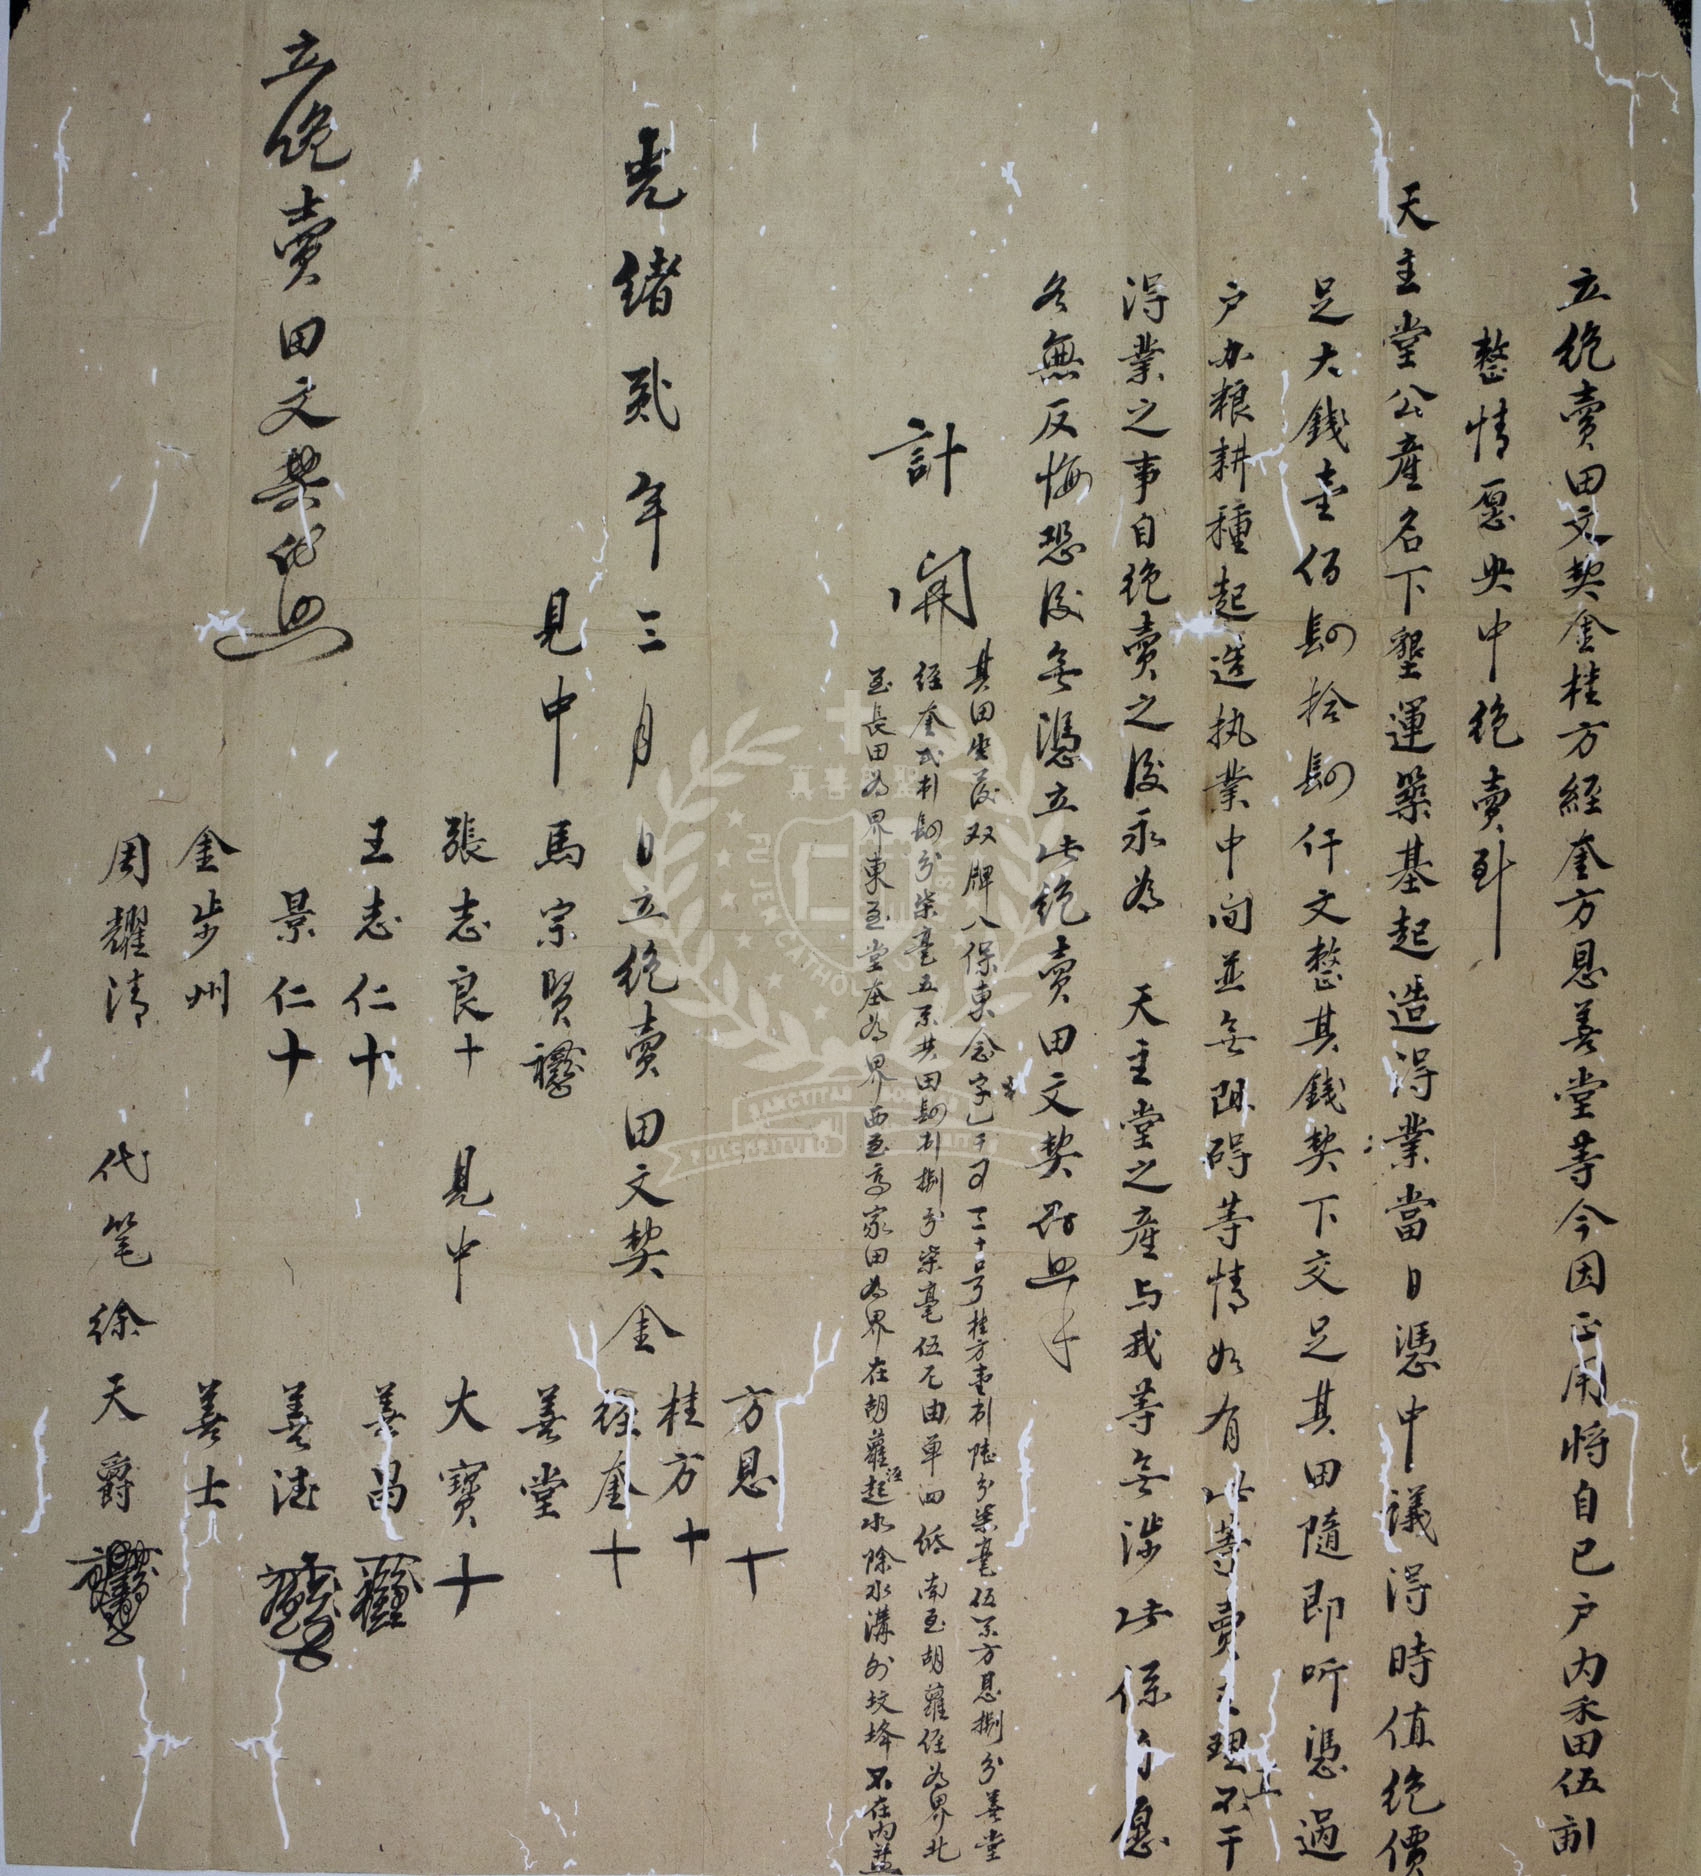 立絕賣田文契金桂方經奎方恩善堂等今因正用將自己户內禾田伍刞
整情愿央中絕賣到
天主堂公產名下墾運築基起造淂業當日憑中議淂時值絕價
足大錢壹佰肆拾肆仟文整其錢契下交足其田隨即听憑過
户办粮耕種起造执業中间並无阻碍等情如有此等賣主理不干
淂業之事自絕賣之後永為 天主堂之產与我等无涉此係自愿
各無反悔恐後无憑立此絕賣田文契存照
計開
其田坐落双牌八保東念字 千 三十号桂方壹刞陸分柒毫伍系方恩捌分善堂
經奎弍刞肆分柒毫五系共田肆刞捌分柒毫伍 由單四 南至胡蘿徑為界北
至長田為界東至堂本為界西至高家田為界在胡蘿徑起水除水溝外坟埄不在內
光緒貳年三月 日立絕賣田文契金
方恩十
桂方十
經奎十
善堂
大寶十
善昌
善法
善士
見中 馬宗賢
張志良十 見中
王志仁十
景仁十
金步州
周耀清 代笔徐天爵
立絕賣田文契